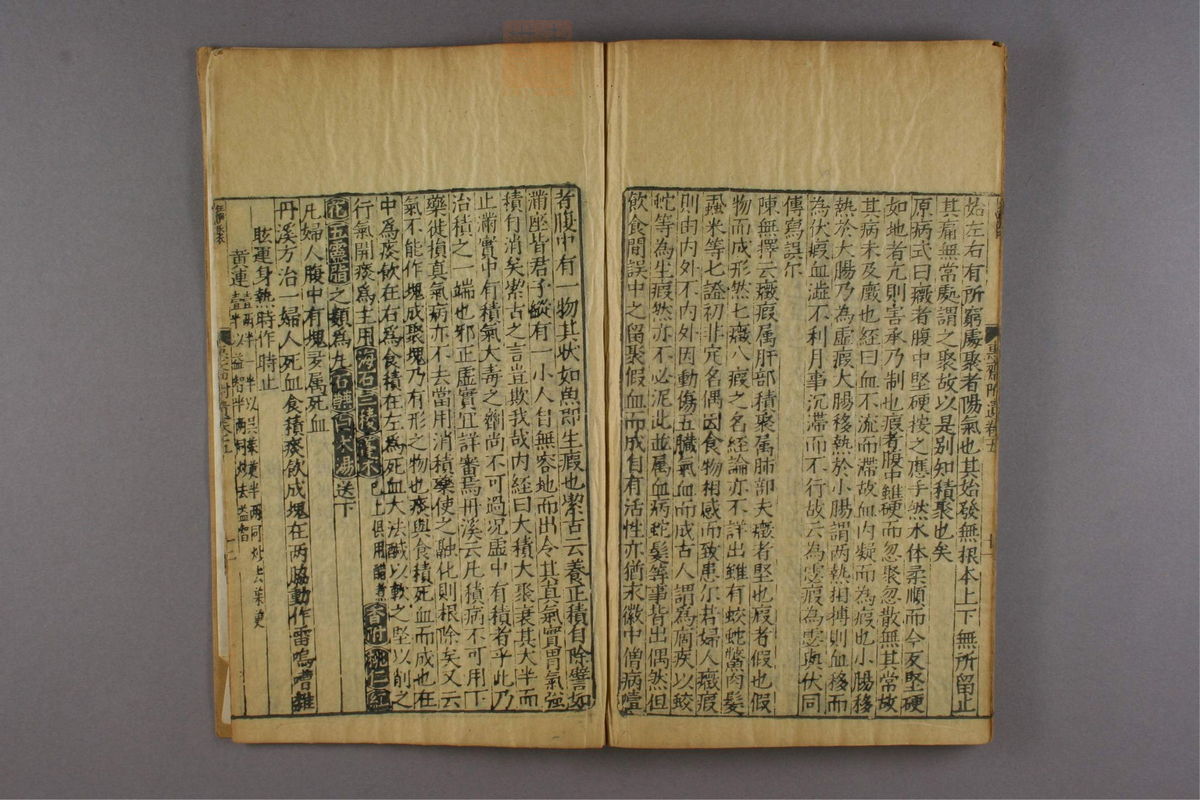 始左右有所窮處聚者陽氣也其始發無根本上下無所留止
其痛無常處謂之聚故以是別知積聚也矣
原病式曰癥者腹中堅硬按之應手然水体柔順而今反堅硬
如地者亢則害承乃制也瘕者腹中雖硬而忽聚忽散無其常故
其病未及癥也經曰血不流而滯故血内凝而為瘕也小腸移
熱於大腸乃為虙瘕大腸移熱於小腸謂兩熱相搏則血移而
為伏瘕血澁不利月事沉滯而不行故云為虙瘕為虙與伏同
傳寫誤尓
陳無擇云癥瘕属肝部積聚属肺部夫癥者堅也瘕者假也假
物而成形然七癥八瘕之名經論亦不詳出雖有蛟蛇鱉肉髮
蝨米等七證初非定名偶因食物相感而致患尓若婦人癥瘕
則由内外不内外因動傷五臓氣血而成古人謂為痼疾以蛟
蛇等為生瘕然亦不必泥此並属血病蛇髮等事皆出偶然但
飲食間誤中之留聚假血而成自有活性亦猶永徽中僧病噎
者腹中有一物其状如魚即生瘕也潔古云養正積自除譬如
滿座皆君子縱有一小人自無容地而出令其真氣實胃氣強
積自消矣潔古之言豈欺我哉内経曰大積大聚衰其大半而
止滿實中有積氣大毒之劑尚不可過况虚中有積者乎此乃
治積之一端也邪正虚實宜詳審焉丹溪云凡積病不可用下
藥徙損真氣病亦不去當用消積藥使之融化則根除矣又云
氣不能作塊成聚塊乃有形之物也痰與食積死血而成也在
中為痰飲在右為食積在左為死血大法鹹以軟之堅以削之
行氣開痰為主用海石三稜莪朮已上俱用醋煮香附桃仁紅
花五靈脂之類為丸石鹻白朮湯送下
凡婦人腹中有塊多属死血
丹溪方治一婦人死血食積痰飲成塊在两脇動作雷鳴嘈雜
眩運身熱時作時止
黄連